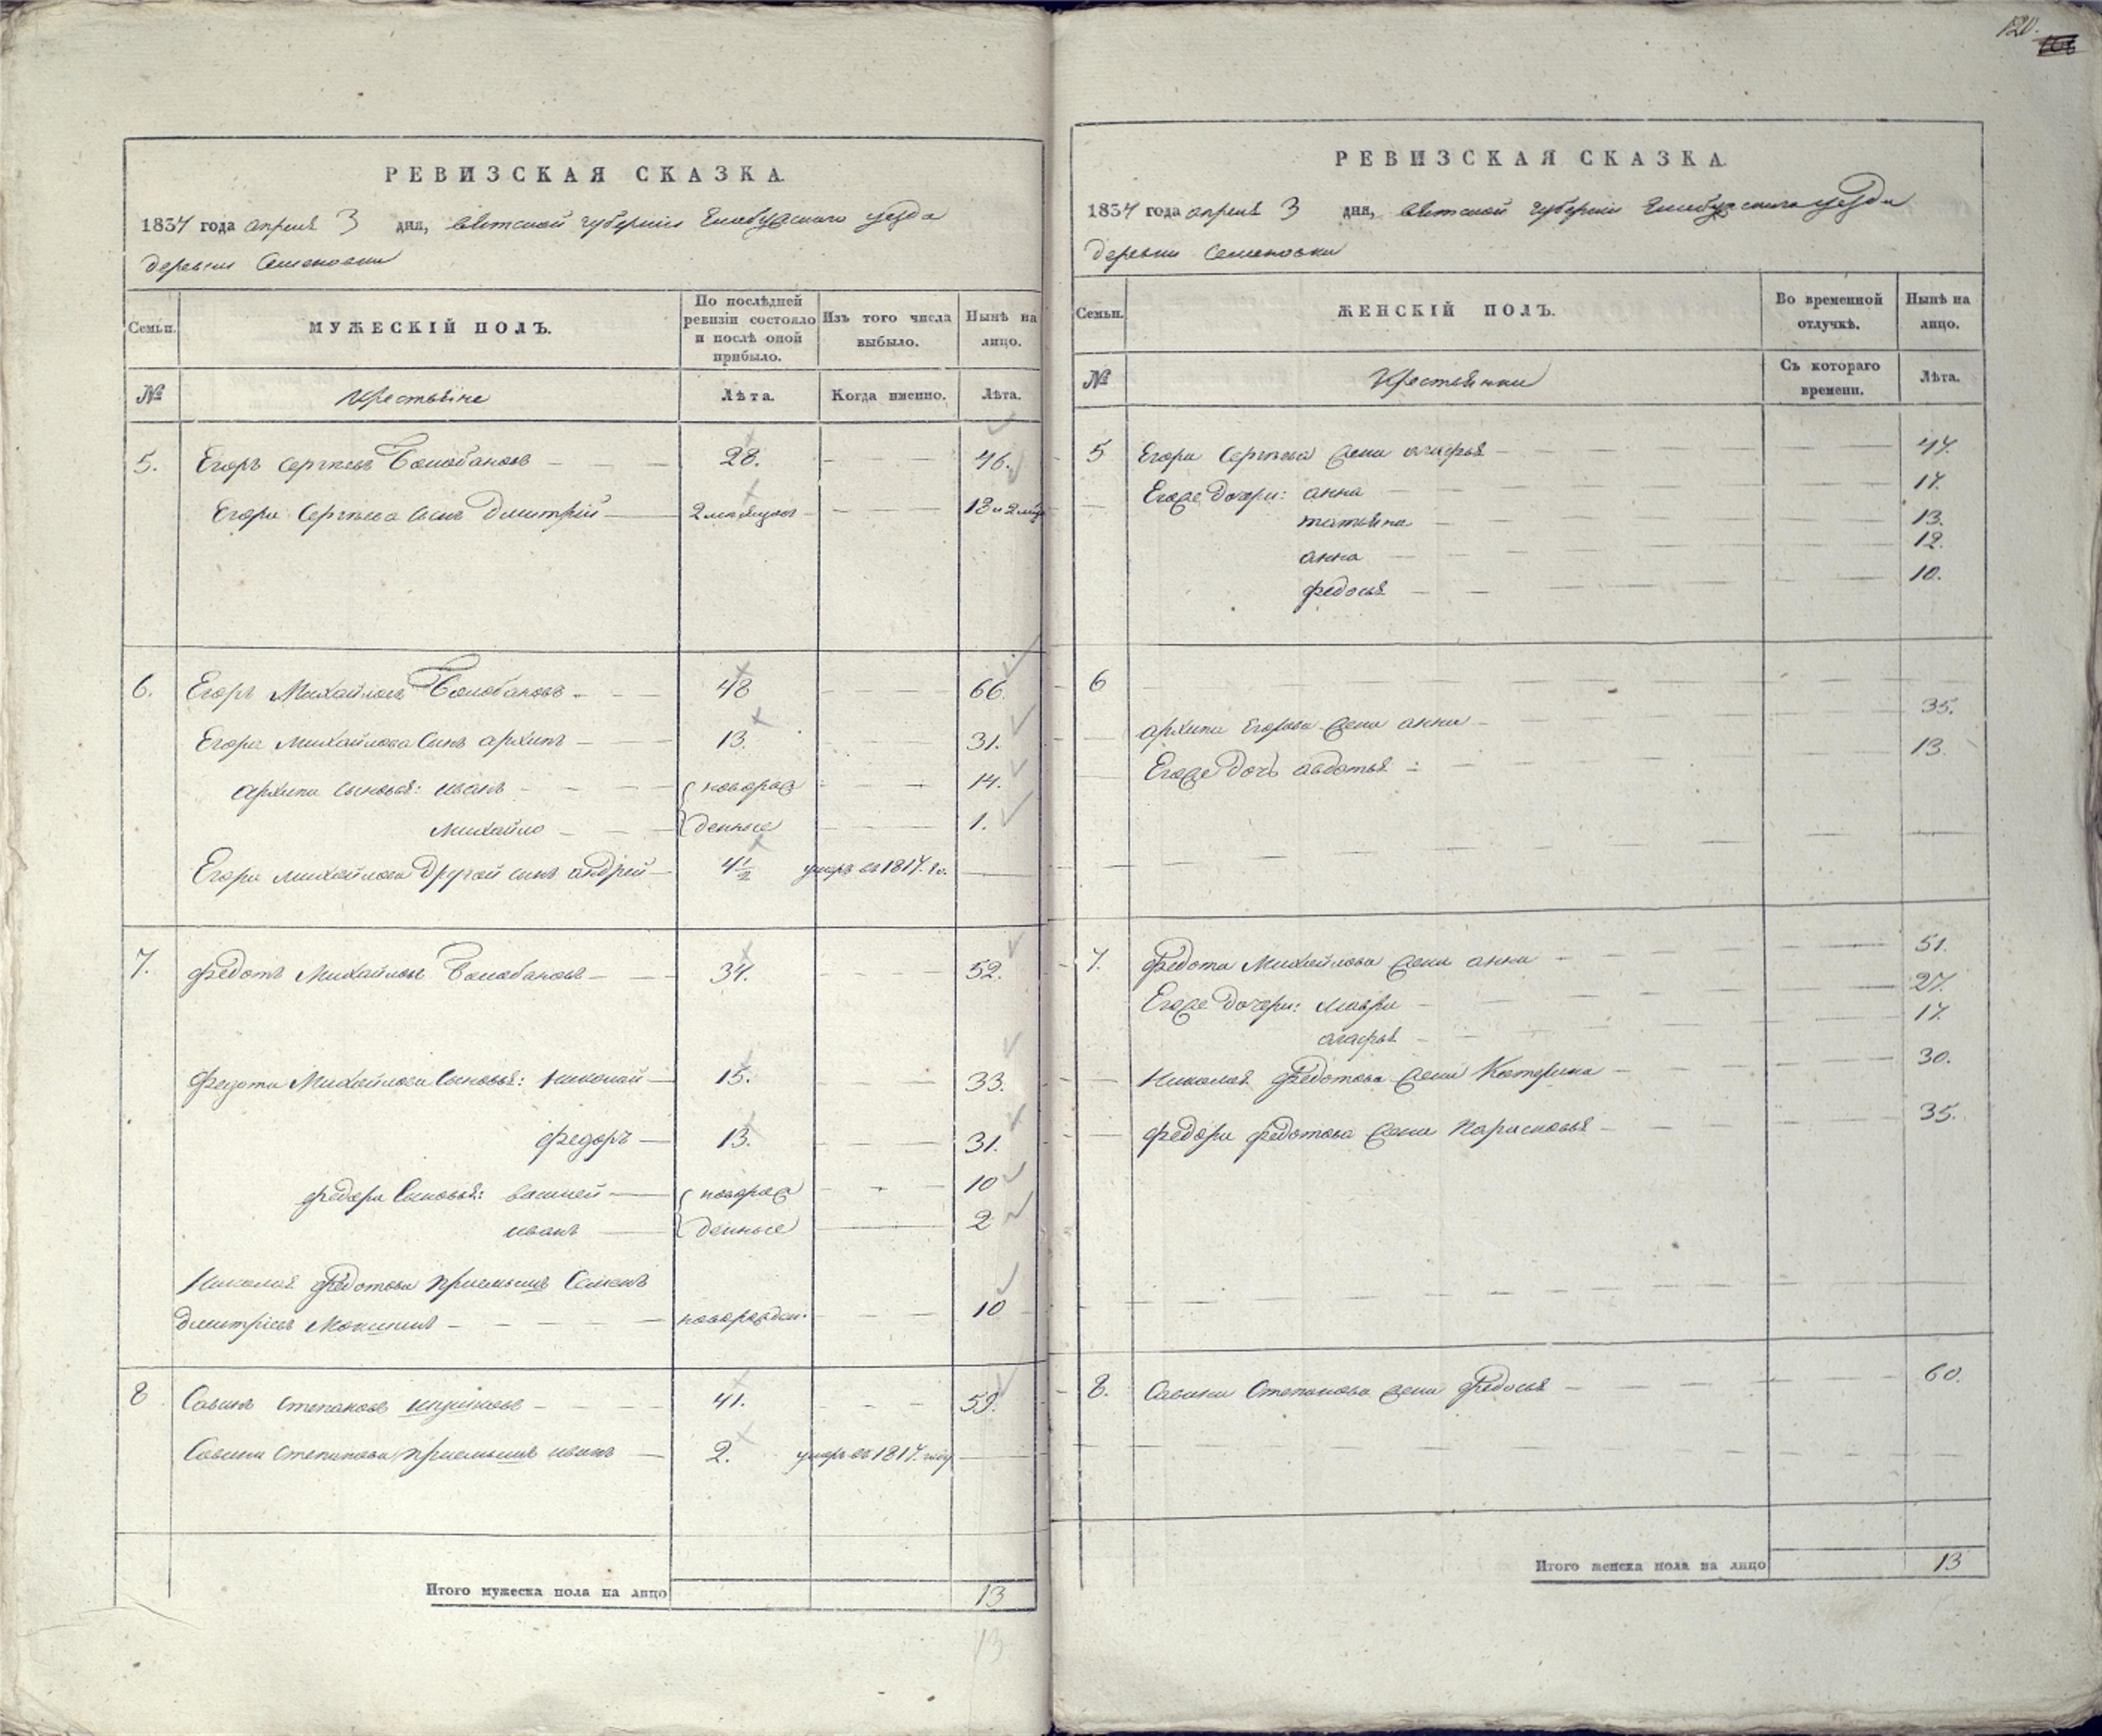 120.
РЕВИЗСКАЯ СКАЗКА.
1834 года апреля 3 дня, Вятской губернии Елабужского уезда
деревни Семеновки
Семьи.
МУЖЕСКІЙ ПОЛЪ.
По послѣдней ревизіи состояло и послѣ оной прибыло.
Изъ того числа выбыло.
Нынѣ на лицо.
№ Крестьяне Лѣта. Когда именно. Лѣта.
5. Егоръ Сергѣевъ Болобановъ 28. 46.
Егора Сергѣева сынъ Дмитрій 2 месяцовъ 18 и 2 мца
6. Егоръ Михайловъ Болобановъ 48 66.
Егора Михайлова сынъ архипъ 13. 31.
архипа сыновья: иванъ новорож 14.
михайло денные 1.
Егора михайлова другой сынъ андрей 4½ умеръ въ 1817. го.
7. федотъ Михайловъ Болобановъ 34. 52.
Федота Михайлова сыновья: николай 15. 33.
федоръ 13. 31.
федора сыновья: василей новорож 10
иванъ денные 2
Николая федотова приемышъ Семенъ
дмитріевъ новорожден. 10
8 Савинъ Степановъ 41. 59.
Савина степанова приемышъ иванъ 2. умеръ въ 1817. году
Итого мужеска пола на лицо 13
13
РЕВИЗСКАЯ СКАЗКА.
1834 года апреля 3 дня, Вятской губернии Елабужского уезда
деревни Семеновки
Семьи.
ЖЕНСКІЙ ПОЛЪ.
Во временной отлучкѣ.
Нынѣ на лицо.
№ Крестьянки Съ котораго времени. Лѣта.
5 Егора Сергѣева жена агафья 47.
Егоже дочери: анна 17.
татьяна 13.
анна 12.
федосья 10.
6
архипа Егорова жена анна 35.
Егоже дочь авдотья 13.
7. федота Михайлова жена анна 51.
Егоже дочери: мавра 27.
агафья 17.
Николая федотова жена Катерина 30.
федора федотова жена Парасковья 35.
8. Савина Степанова жена федосья 60.
Итого женска пола на лицо 13